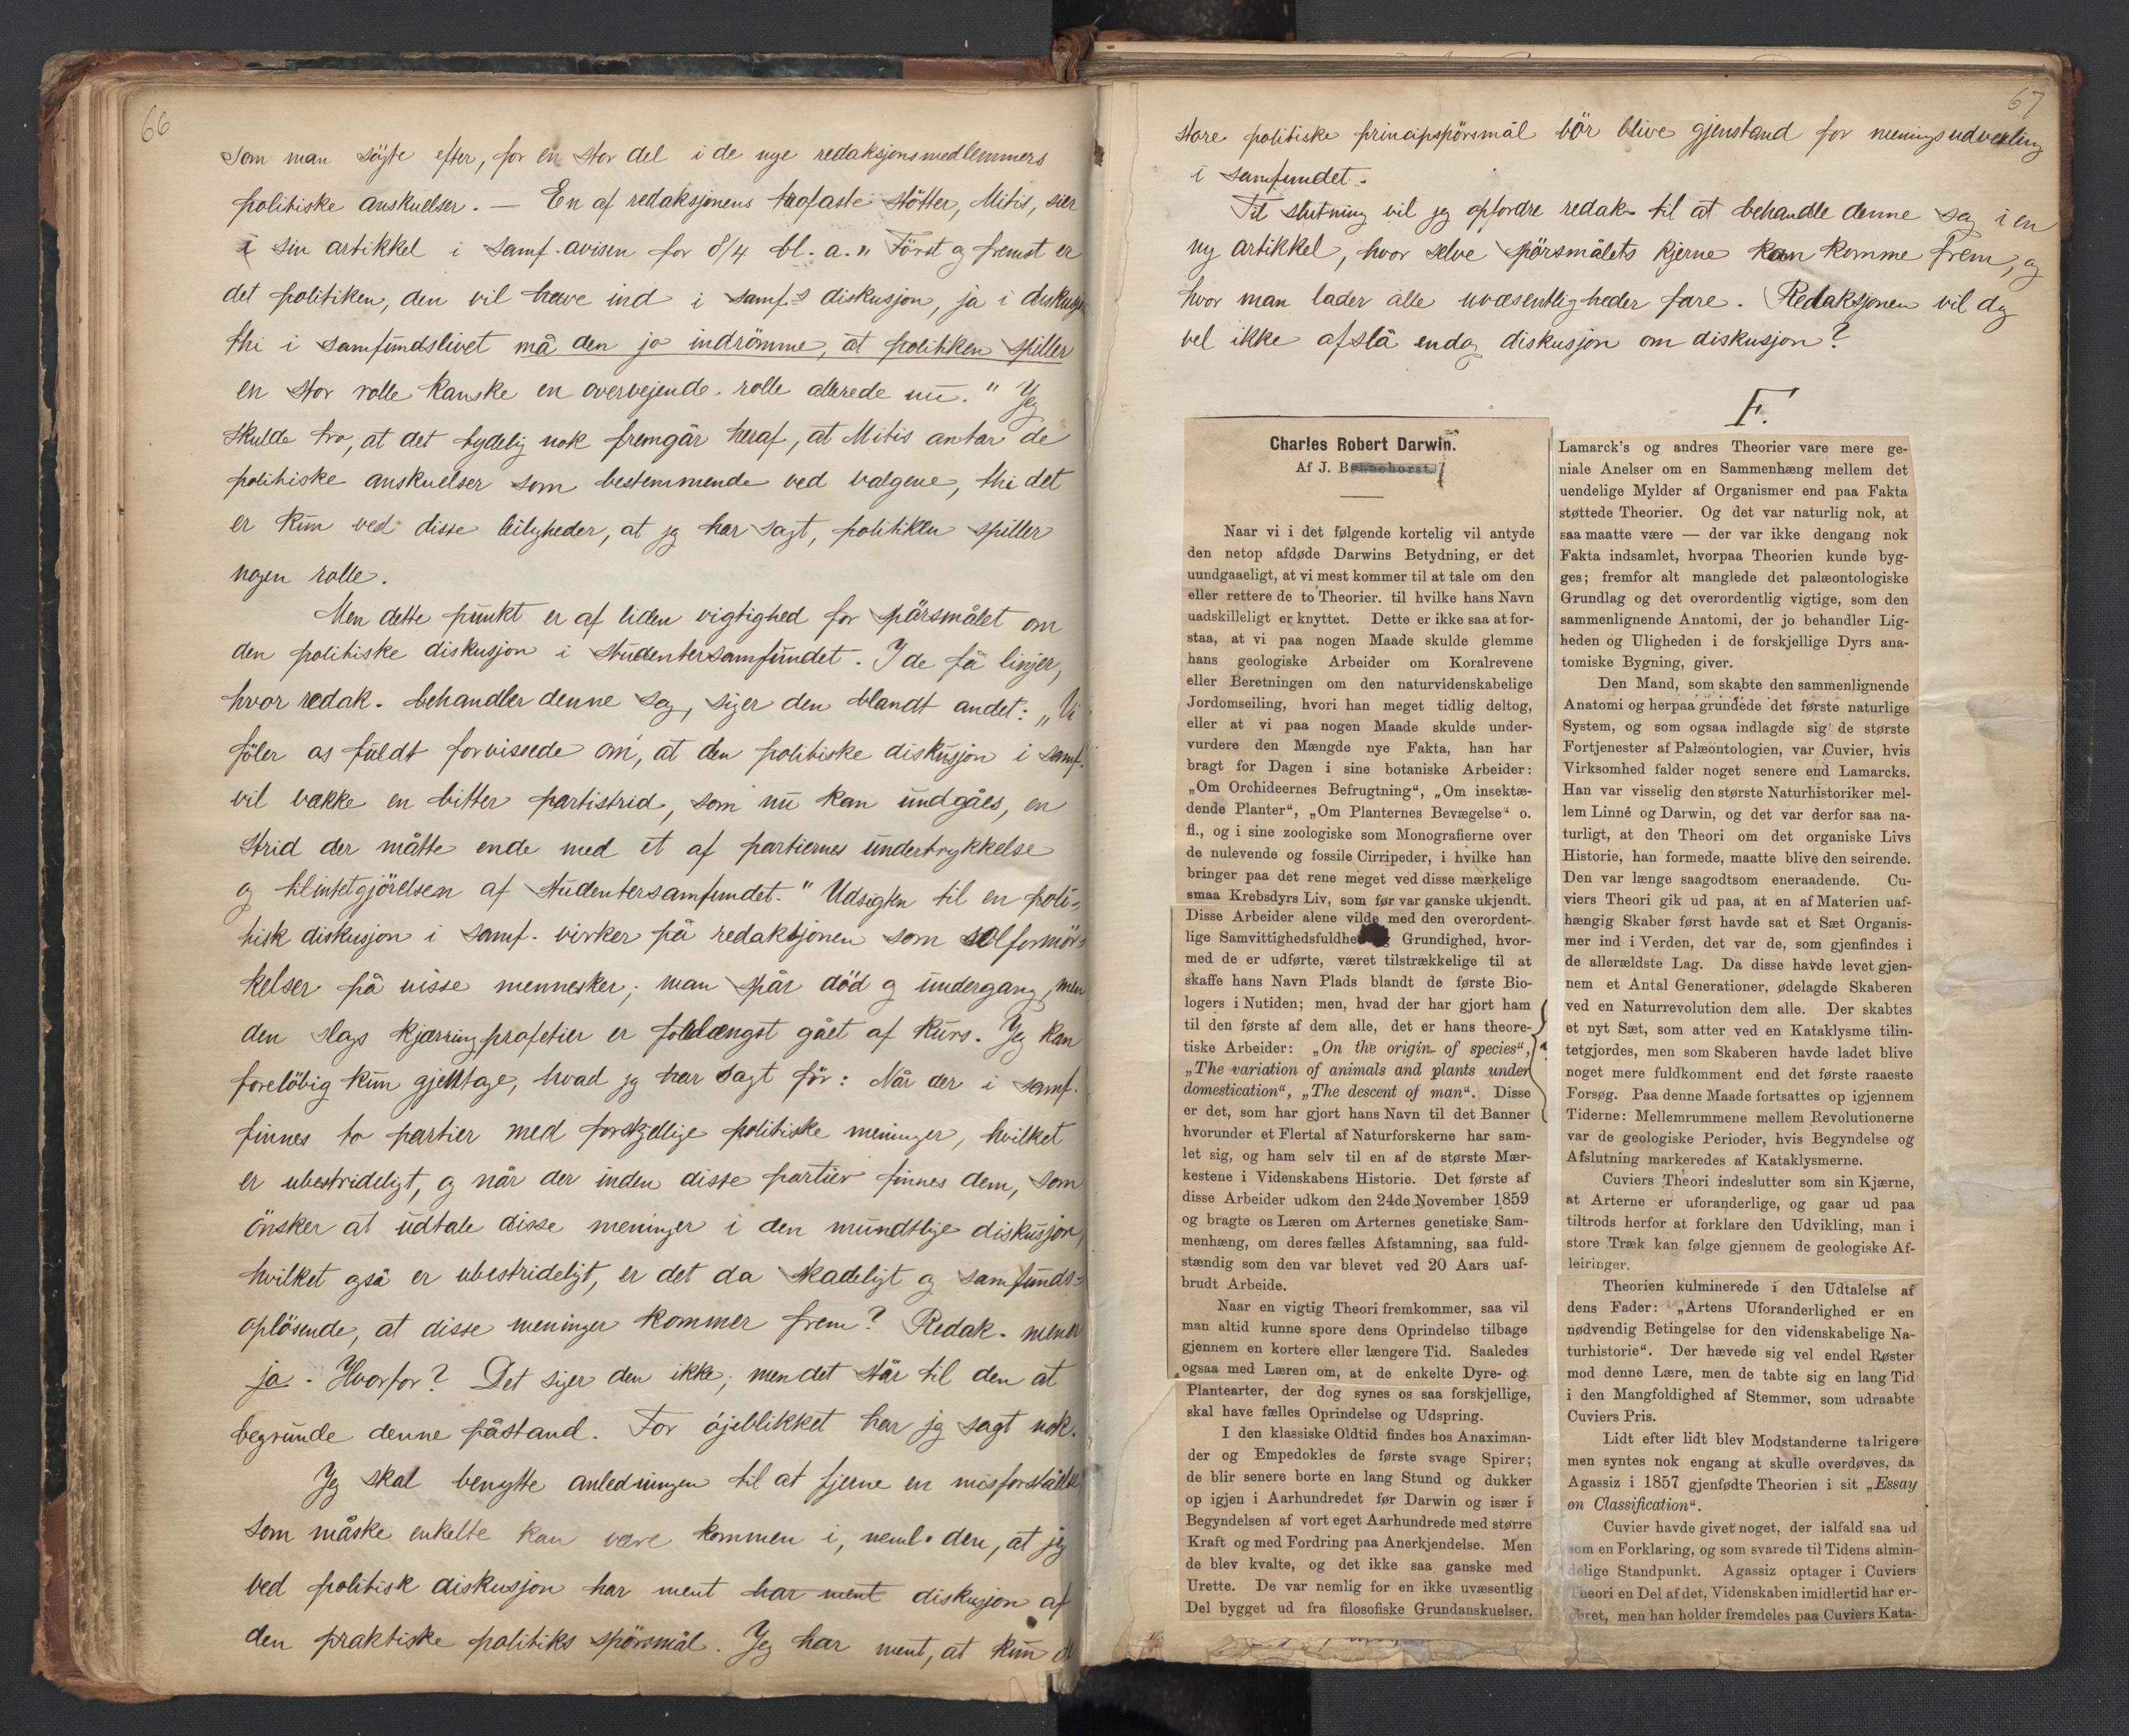 66
som man søgte efter, for en stor del i de nye redaksjonsmedlemmers
politiske anskuelser. — En af redaksjonens trofaste støtter, Mitis, sier
i sin artikkel i samf. avisen for 8/4 bl. a. „Först og fremst er
det politiken, den vil have ind i samf.s diskusjon, ja i diskusjon
thi i samfundslivet må den jo indrömme, at politiken spiller
en stor rolle kanske en overvejende rolle allerede nu." Jeg
skulde tro, at det tydelig nok fremgår heraf, at Mitis antar de
politiske anskuelser som bestemmende ved valgene, thi det
er kun ved disse leiligheder, at jeg har sagt, politikken spiller
nogen rolle.
Men dette punkt er af liden vigtighed for spörsmålet om
den politiske diskusjon i studentersamfundet. I de få linjer,
hvor redak. behandler denne sag, siger den blandt andet: „Vi
föler os fuldt forvissede om, at den politiske diskusjon i samf.
vil vække en bitter partistrid, som nu kan undgåes, en
strid der måtte ende med et af partiernes undertrykkelse
og tilintetgjörelsen af studentersamfundet." Udsigten til en poli-
tisk diskusjon i samf. virker på redaktjonen som solformör-
kelser på visse mennesker; man spår död og undergang, men
den slags kjærringprofetier er forlængst gået af kurs. Jeg kan
forelöbig kun gjentage, hvad jeg har sagt för: Når der i samf.
finnes to partier med forskjellige politiske meninger, hvilket
er ubestrideligt, og når der inden disse partier finnes dem, som
önsker at udtale disse meninger i den mundtlige diskusjon,
hvilket også er ubestrideligt, er det da skadeligt og samfunds-
oplösende, at disse meninger kommer frem? Redak. mener
ja. Hvorfor? Det siger den ikke; men det står til den at
begrunde denne påstand. For öjeblikket har jeg sagt nok.
Jeg skal benytte anledningen til at fjerne en misforståelse
som måske enkelte kan være kommen i, neml. den, at jeg
ved politisk diskusjon har ment har ment diskusjon af
den praktiske politiks spörsmål. Jeg har ment, at kun
67
store politiske principspörsmål bör blive gjenstand for meningsudveksling
i samfundet.
Til slutning vil jeg opfordre redak. til at behandle denne sag i en
ny artikkel, hvor selve spörsmålets kjerne kan komme frem, og
hvor man lader alle uvæsentligheder fare. Redaktsjonen vil dog
vel ikke afslå endog diskusjon om diskusjon?
F.
Charles Robert Darwin.
Af J. B
Naar vi i det følgende kortelig vil antyde
den netop afdøde Darwins Betydning, er det
uundgaaeligt, at vi mest kommer til at tale om den
eller rettere de to Theorier. til hvilke hans Navn
uadskilleligt er knyttet. Dette er ikke saa at for-
staa, at vi paa nogen Maade skulde glemme
hans geologiske Arbeider om Koralrevene
eller Beretningen om den naturvidenskabelige
Jordomseiling, hvori han meget tidlig deltog,
eller at vi paa nogen Maade skulde under-
vurdere den Mængde nye Fakta, han har
bragt for Dagen i sine botaniske Arbeider:
„Om Orchideernes Befrugtning“, „Om insektæ-
dende Planter“, „Om Planternes Bevægelse“ o.
fl., og i sine zoologiske som Monografierne over
de nulevende og fossile Cirripeder, i hvilke han
bringer paa det rene meget ved disse mærkelige
smaa Krebsdyrs Liv, som før var ganske ukjendt.
Disse Arbeider alene vilde med den overordent-
lige Samvittighedsfuldhe Grundighed, hvor-
med de er udførte, været tilstrækkelige til at
skaffe hans Navn Plads blandt de første Bio-
logers i Nutiden; men, hvad der har gjort ham
til den første af dem alle, det er hans theore-
tiske Arbeider: „On the origin of species“,
„The variation of animals and plants under
domestication“, „The descent of man“. Disse
er det, som har gjort hans Navn til det Banner
hvorunder et Flertal af Naturforskerne har sam-
let sig, og ham selv til en af de største Mær-
kestene i Videnskabens Historie. Det første af
disse Arbeider udkom den 24de November 1859
og bragte os Læren om Arternes genetiske Sam-
menhæng, om deres fælles Afstamning, saa fuld-
stændig som den var blevet ved 20 Aars uaf-
brudt Arbeide.
Naar en vigtig Theori fremkommer, saa vil
man altid kunne spore dens Oprindelse tilbage
gjennem en kortere eller længere Tid. Saaledes
ogsaa med Læren om, at de enkelte Dyre- og
Plantearter, der dog synes os saa forskjellige,
skal have fælles Oprindelse og Udspring.
I den klassiske Oldtid findes hos Anaximan-
der og Empedokles de første svage Spirer;
de blir senere borte en lang Stund og dukker
op igjen i Aarhundredet før Darwin og især i
Begyndelsen af vort eget Aarhundrede med større
Kraft og med Fordring paa Anerkjendelse. Men
de blev kvalte, og det ikke saa ganske med
Urette. De var nemlig for en ikke uvæsentlig
Del bygget ud fra filosofiske Grundanskuelser.
Lamarck's og andres Theorier vare mere ge-
niale Anelser om en Sammenhæng mellem det
uendelige Mylder af Organismer end paa Fakta
støttede Theorier. Og det var naturlig nok, at
saa maatte være — der var ikke dengang nok
Fakta indsamlet, hvorpaa Theorien kunde byg-
ges; fremfor alt manglede det palæontologiske
Grundlag og det overordentlig vigtige, som den
sammenlignende Anatomi, der jo behandler Lig-
heden og Uligheden i de forskjellige Dyrs ana-
tomiske Bygning, giver.
Den Mand, som skabte den sammenlignende
Anatomi og herpaa grundede det første naturlige
System, og som ogsaa indlagde sig de største
Fortjenester af Palæontologien, var Cuvier, hvis
Virksomhed falder noget senere end Lamarcks.
Han var visselig den største Naturhistoriker mel-
lem Linné og Darwin, og det var derfor saa na-
turligt, at den Theori om det organiske Livs
Historie, han formede, maatte blive den seirende.
Den var længe saagodtsom eneraadende. Cu-
viers Theori gik ud paa, at en af Materien uaf-
hængig Skaber først havde sat et Sæt Organis-
mer ind i Verden, det var de, som gjenfindes i
de allerældste Lag. Da disse havde levet gjen-
nem et Antal Generationer, ødelagde Skaberen
ved en Naturrevolution dem alle. Der skabtes
et nyt Sæt, som atter ved en Kataklysme tilin-
tetgjordes, men som Skaberen havde ladet blive
noget mere fuldkomment end det første raaeste
Forsøg. Paa denne Maade fortsattes op igjennem
Tiderne: Mellemrummene mellem Revolutionerne
var de geologiske Perioder, hvis Begyndelse og
Afslutning markeredes af Kataklysmerne.
Cuviers Theori indeslutter som sin Kjærne,
at Arterne er uforanderlige, og gaar ud paa
tiltrods herfor at forklare den Udvikling, man i
store Træk kan følge gjennem de geologiske Af-
leiringer.
Theorien kulminerede i den Udtalelse af
dens Fader: „Artens Uforanderlighed er en
nødvendig Betingelse for den videnskabelige Na-
turhistorie“. Der hævede sig vel endel Røster
mod denne Lære, men de tabte sig en lang Tid
i den Mangfoldighed af Stemmer, som udraabte
Cuviers Pris.
Lidt efter lidt blev Modstanderne talrigere
men syntes nok engang at skulle overdøves, da
Agassiz i 1857 gjenfødte Theorien i sit „Essay
on Classification“.
Cuvier havde givet noget, der ialfald saa ud
som en Forklaring, og som svarede til Tidens almin-
delige Standpunkt. Agassiz optager i Cuviers
Theori en Del af det, Videnskaben imidlertid har er-
obret, men han holder fremdeles paa Cuviers Kata-